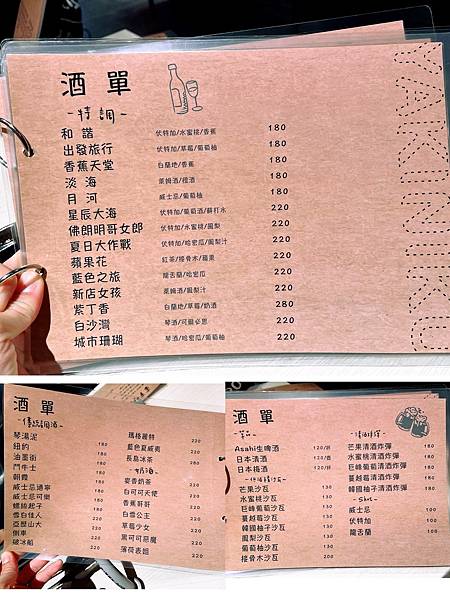 酒 單
~特調~
和 諧 伏特加/水蜜桃/香蕉 180
出發旅行 伏特加/草莓/葡萄柚 180
香蕉天堂 白蘭地/香蕉 180
淡 海 萊姆酒/橙酒 180
月 河 威士忌/葡萄柚 180
星辰大海 伏特加/葡萄酒/蘇打水 220
佛朗明哥女郎 伏特加/水蜜桃/鳳梨 220
夏日大作戰 伏特加/哈密瓜/鳳梨汁 220
蘋果花 紅茶/接骨木/蘋果 220
藍色之旅 龍舌蘭/哈密瓜 220
新店女孩 萊姆酒/鳳梨汁 220
紫丁香 白蘭地/草莓/奶酒 280
白沙灣 琴酒/可爾必思 220
城市珊瑚 琴酒/哈密瓜/葡萄柚 220
YAKINIKU
酒 單
~傳統調酒~
琴湯尼 180
紐約 180
油漬街 180
鬥牛士 180
朝霞 180
威士忌通寧 180
威士忌可樂 180
螺絲起子 180
雪白佳人 220
亞歷山大 220
側車 220
破冰船 220
瑪格麗特 220
藍色夏威夷 220
長島冰茶 280
~奶酒~
麥香奶茶 220
白可可天使 220
香蕉哥哥 220
白雪公主 220
草莓少女 220
黑可可惡魔 220
薄荷表姐 220
酒 單
Asahi生啤酒 120/杯
日本清酒 120/壺
日本梅酒 120/杯
芒果沙瓦 130
水蜜桃沙瓦 130
巨峰葡萄沙瓦 130
蔓越莓沙瓦 130
韓國柚子沙瓦 130
鳳梨沙瓦 130
葡萄柚沙瓦 130
接骨木沙瓦 200
芒果清酒炸彈 180
水蜜桃清酒炸彈 180
巨峰葡萄清酒炸彈 180
蔓越莓清酒炸彈 180
韓國柚子清酒炸彈 180
~Shot~
威士忌 100
伏特加 100
龍舌蘭 100